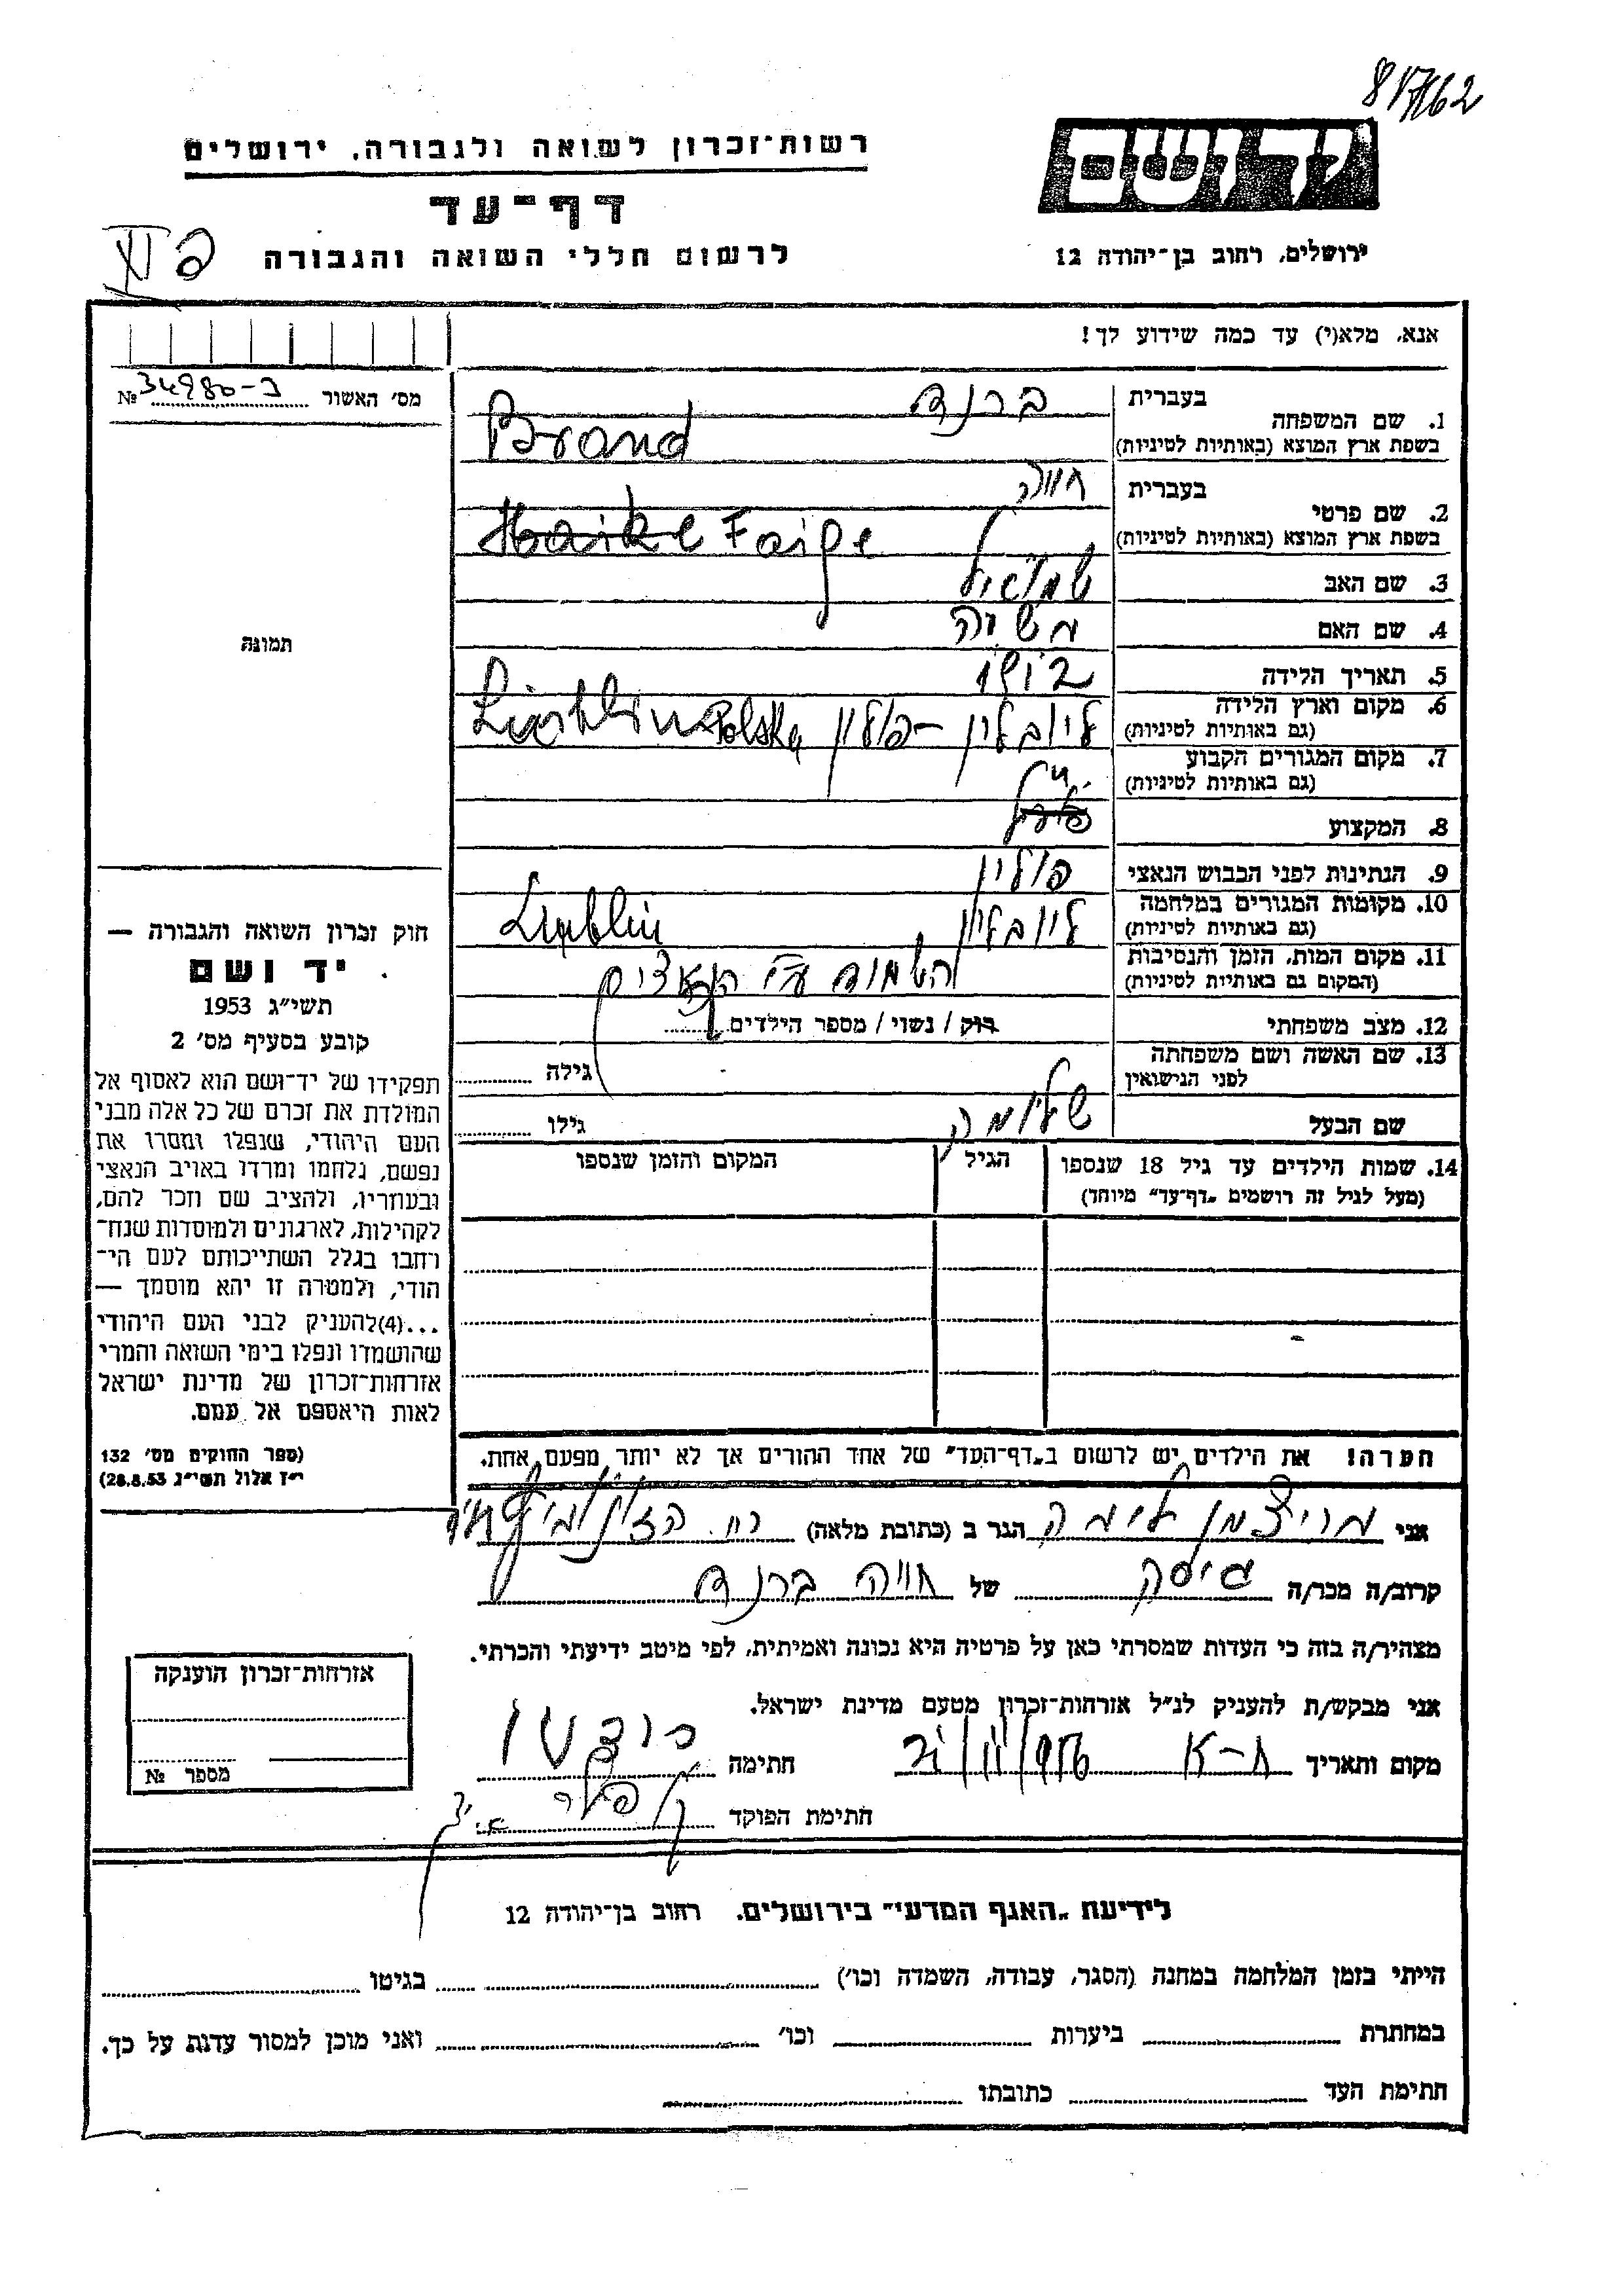 רשות־זכרון לשואה ולגבורה, ירושלים
דף־עד
לרשום חללי השואה והגבורה
יד ושם
ירושלים, רחוב בן־יהודה 12
אנא, מלא(י) עד כמה שידוע לך!
מס׳ האשור № 34980-ב
תמונה
1. שם המשפחה בעברית ברנד
בשפת ארץ המוצא (באותיות לטיניות) Brand
2. שם פרטי בעברית חוה
בשפת ארץ המוצא (באותיות לטיניות) Faige
3. שם האב שמואל
4. שם האם
5. תאריך הלידה
6. מקום וארץ הלידה
(גם באותיות לטיניות) ליובלין – פולין Polska
7. מקום המגורים הקבוע
(גם באותיות לטיניות)
8. המקצוע
9. הנתינות לפני הכבוש הנאצי פולין
10. מקומות המגורים במלחמה
(גם באותיות לטיניות) ליובלין Lublin
11. מקום המות, הזמן והנסיבות
(המקום גם באותיות לטיניות) ע״י הנאצים
12. מצב משפחתי רוק / נשוי / מספר הילדים
13. שם האשה ושם משפחתה
לפני הנישואין גילה
שם הבעל שלומה גילו
14. שמות הילדים עד גיל 18 שנספו הגיל המקום והזמן שנספו
(מעל לגיל זה רושמים „דף־עד״ מיוחד)
חוק זכרון השואה והגבורה —
יד ושם
תשי״ג 1953
קובע בסעיף מס׳ 2
תפקידו של יד־ושם הוא לאסוף אל
המולדת את זכרם של כל אלה מבני
העם היהודי, שנפלו ומסרו את
נפשם, נלחמו ומרדו באויב הנאצי
ובעוזריו, ולהציב שם וזכר להם,
לקהילות, לארגונים ולמוסדות שנח־
רחבו בגלל השתייכותם לעם הי־
הודי, ולמטרה זו יהא מוסמך —
...(4)להעניק לבני העם היהודי
שהושמדו ונפלו בימי השואה והמרי
אזרחות־זכרון של מדינת ישראל
לאות היאספם אל עמם.
(ספר החוקים מס׳ 132
י״ז אלול תשי״ג 28.8.53)
הערה! את הילדים יש לרשום ב„דף־העד״ של אחד ההורים אך לא יותר מפעם אחת.
אני הגר ב (כתובת מלאה) רח.
קרוב/ה מכר/ה גיסה של חוה ברנד
מצהיר/ה בזה כי העדות שמסרתי כאן על פרטיה היא נכונה ואמיתית, לפי מיטב ידיעתי והכרתי.
אני מבקש/ת להעניק לנ״ל אזרחות־זכרון מטעם מדינת ישראל.
מקום ותאריך ת-א חתימה
חתימת הפוקד
אזרחות־זכרון הוענקה
מספר №
לידיעת „האגף המדעי״ בירושלים. רחוב בן־יהודה 12
הייתי בזמן המלחמה במחנה (הסגר, עבודה, השמדה וכו׳) בגיטו
במחתרת ביערות וכו׳ ואני מוכן למסור עדות על כך.
חתימת העד כתובתו